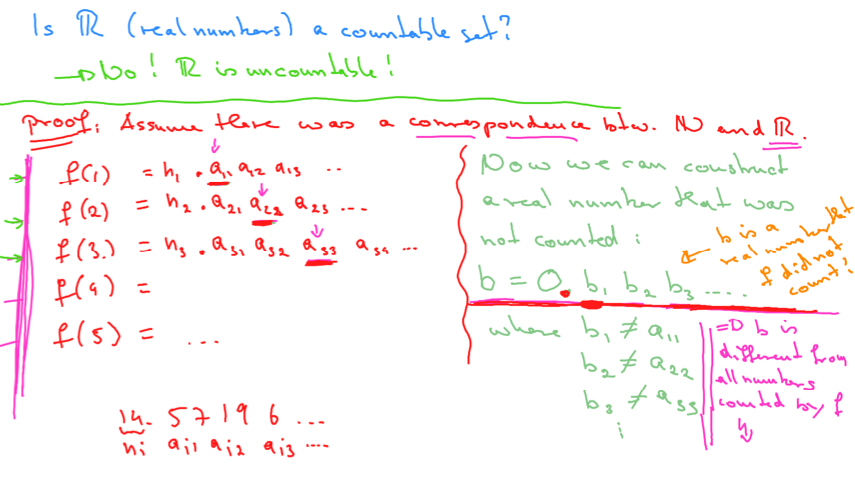 Is ℝ (real numbers) a countable set?
→ No! ℝ is uncountable!
Proof: Assume there was a correspondence btw. ℕ and ℝ.
f(1) = n₁ . a₁₁ a₁₂ a₁₃ ..
f(2) = n₂ . a₂₁ a₂₂ a₂₃ ...
f(3) = n₃ . a₃₁ a₃₂ a₃₃ a₃₄ ...
f(4) =
f(5) = ...
14. 5 7 1 9 6 ...
nᵢ aᵢ₁ aᵢ₂ aᵢ₃ ....
Now we can construct
a real number that was
not counted :
b = 0. b₁ b₂ b₃ ....
where b₁ ≠ a₁₁
b₂ ≠ a₂₂
b₃ ≠ a₃₃
⋮
b is a
real number that
f did not
count!
⇒ b is
different from
all numbers
counted by f